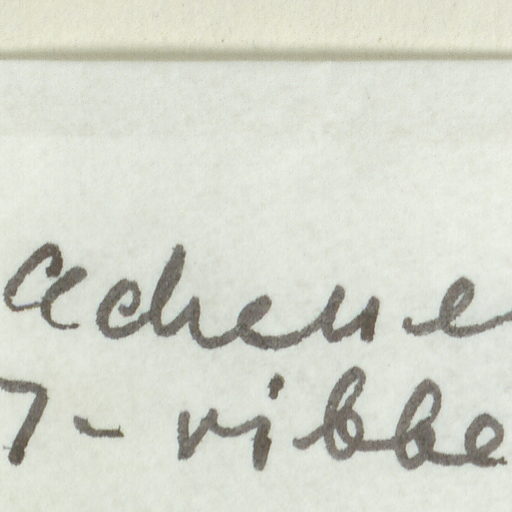 achene
7-ribbe